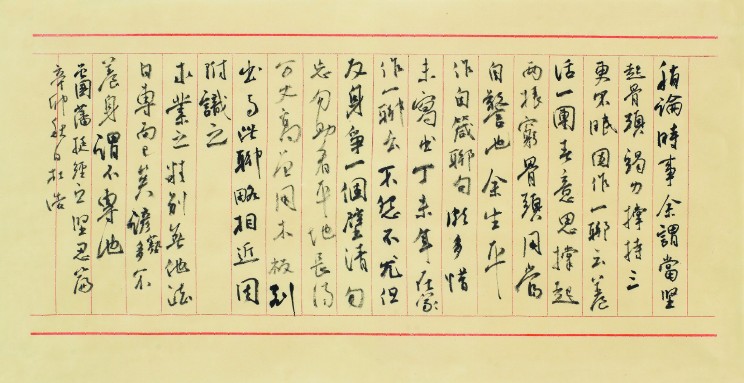 暢論時事余謂當堅
起骨頭竭力撐持三
更不眠因作一聯云養
活一團春意思撐起
兩根窮骨頭用當
自警也余生平
作自箴聯句頗多惜
未寫出丁未年在家
作一聯云不怨不尤但
反身爭一個壁清勿
忘勿助看平地長得
万丈高曾用木板刻
出與此聯略相近因
附識之
求業之精別無他法
曰專而已矣諺藝多不
養身謂不專也
曾國藩挺經之堅忍篇
辛卯秋日杜浩